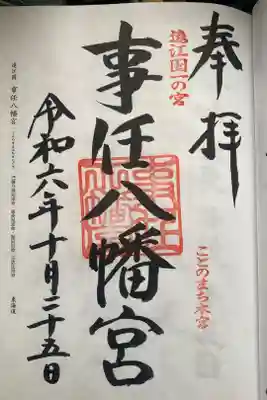 奉拝
遠江国一の宮
ことのまち本宮
事任八幡宮
令和六年十月二十五日
遠江国 事任八幡宮
東海道